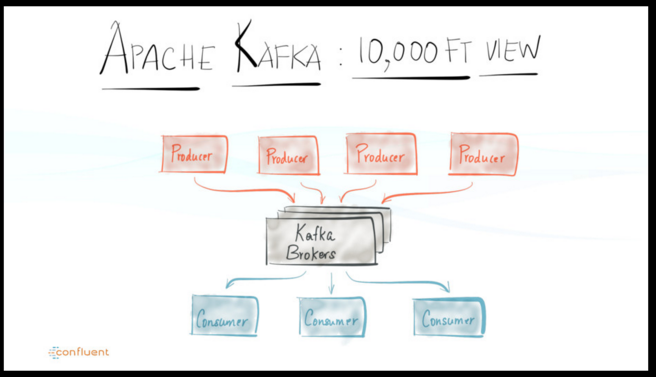 APACHE KAFKA : 10,000 FT VIEW
Producer Producer Producer Producer
Kafka
Brokers
Consumer Consumer Consumer
confluent